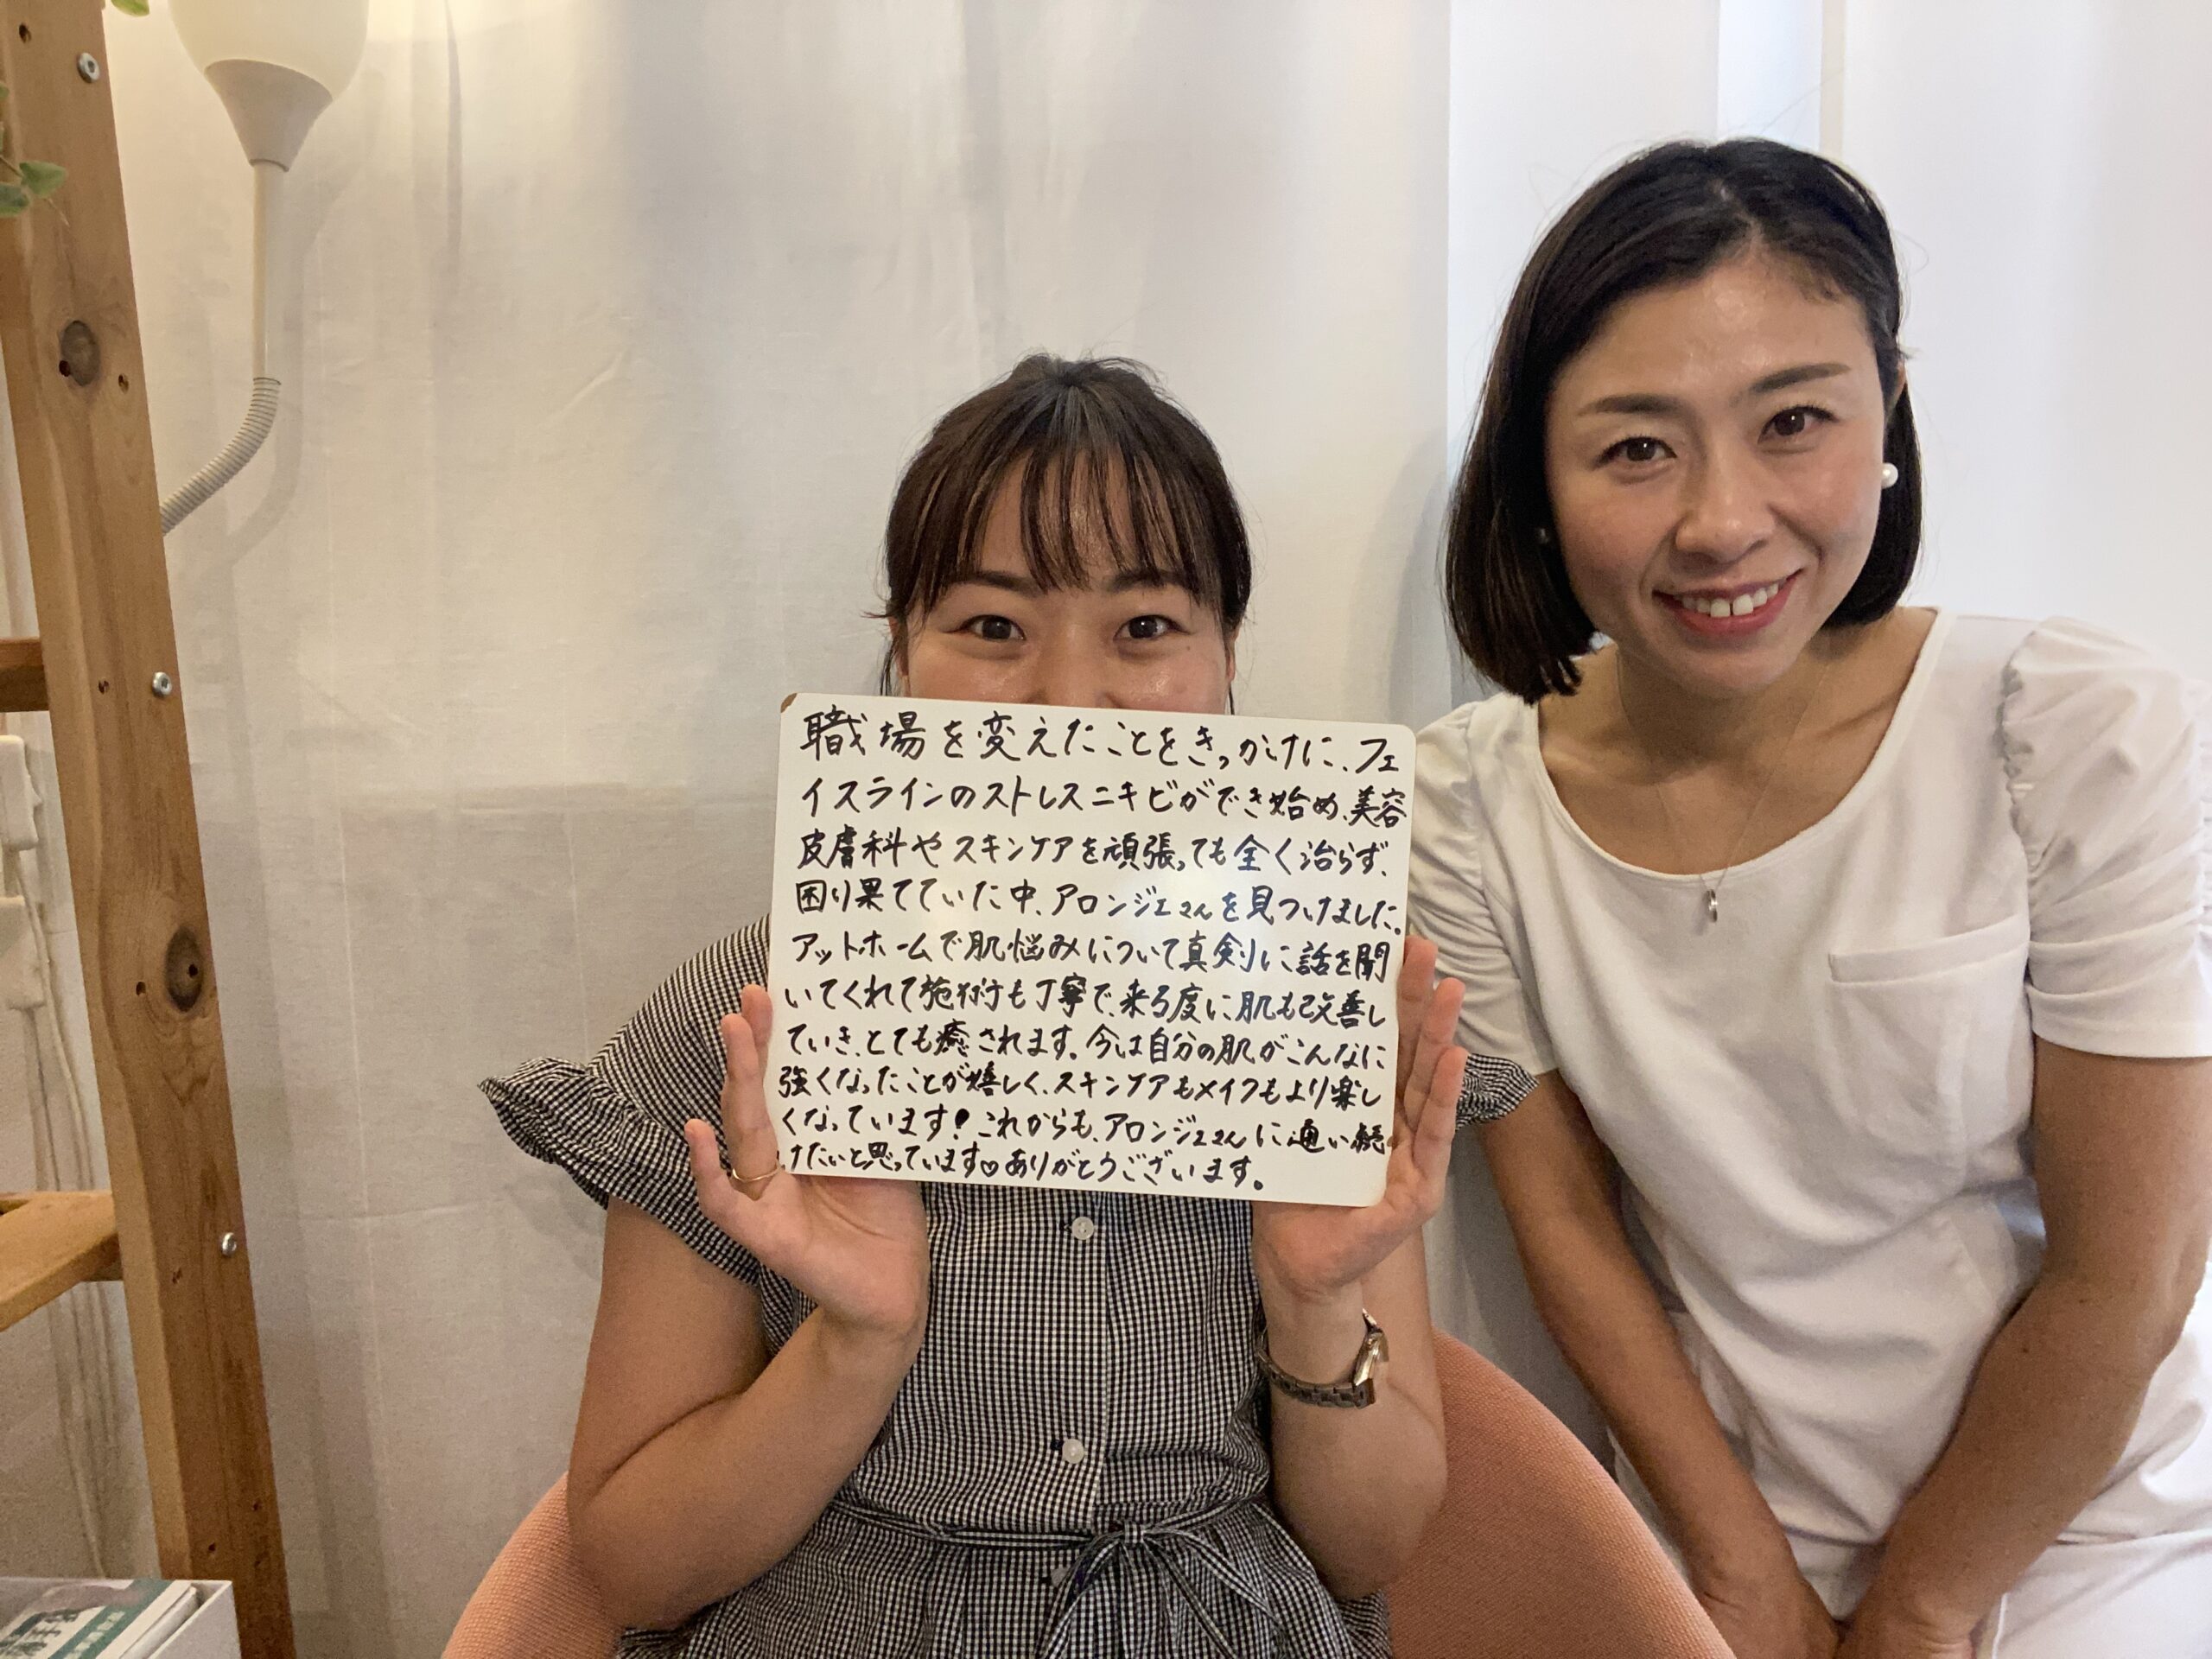 職場を変えたことをきっかけに、フェ
イスラインのストレスニキビができ始め、美容
皮膚科やスキンケアを頑張っても全く治らず、
困り果てていた中、アロンジェさんを見つけました。
アットホームで肌悩みについて真剣に話を聞
いてくれて施術も丁寧で、来る度に肌も改善し
ていき、とても癒されます。今は自分の肌がこんなに
強くなったことが嬉しく、スキンケアもメイクもより楽し
くなっています!これからも、アロンジェさんに通い続
けたいと思っています♡ありがとうございます。